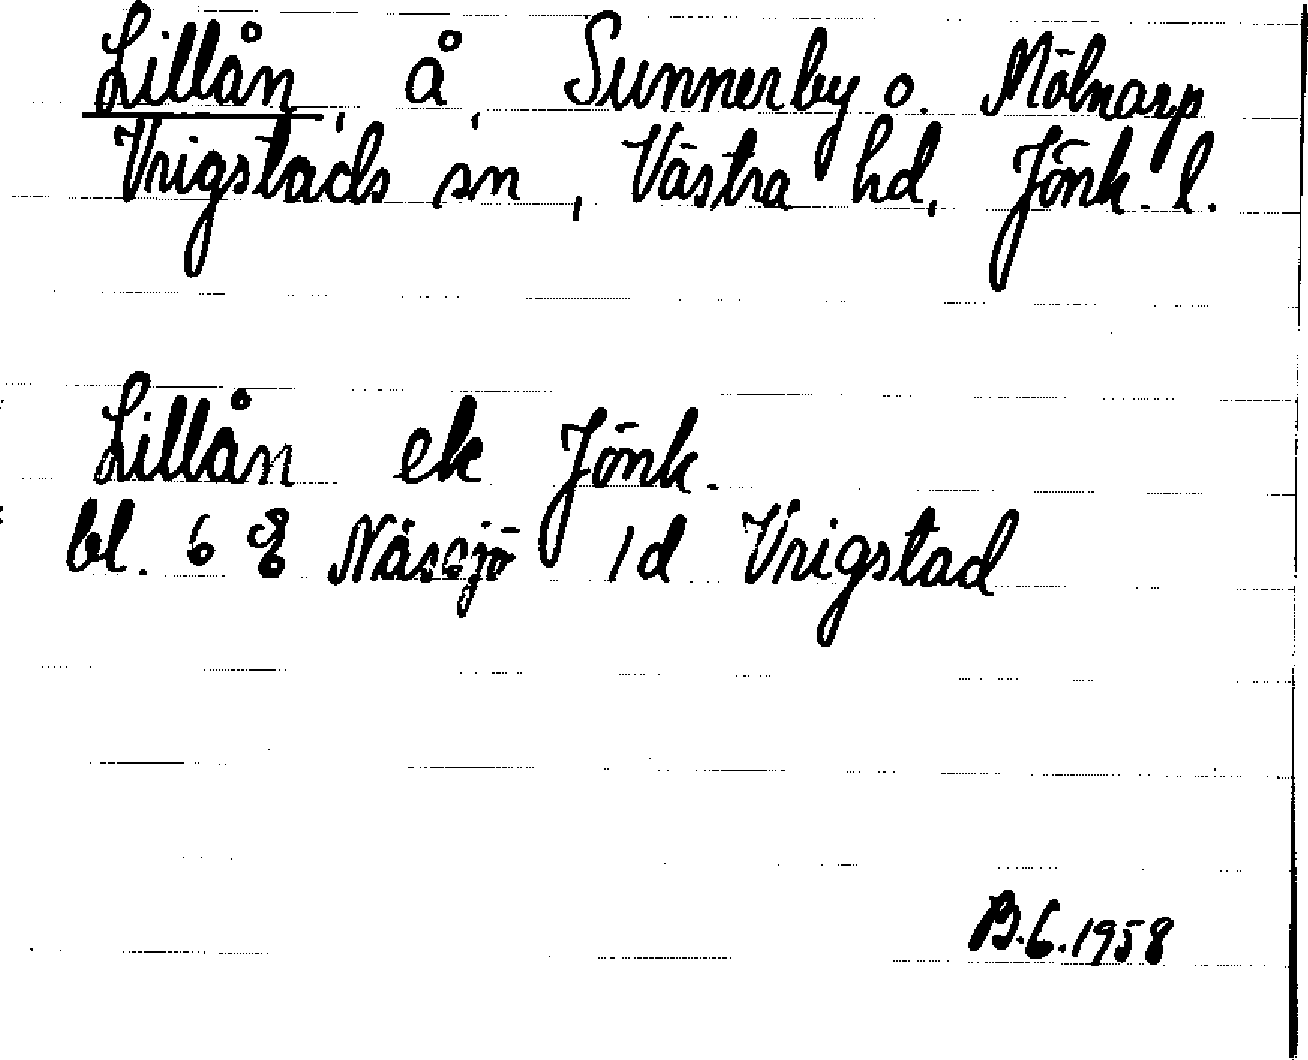 Lillån, å, Sunnerby o. Mölnarp
Vrigstads sn, Västra hd, Jönk. l.
Lillån ek Jönk.
bl. 6 Nässjö 1d Vrigstad
B.G.1958